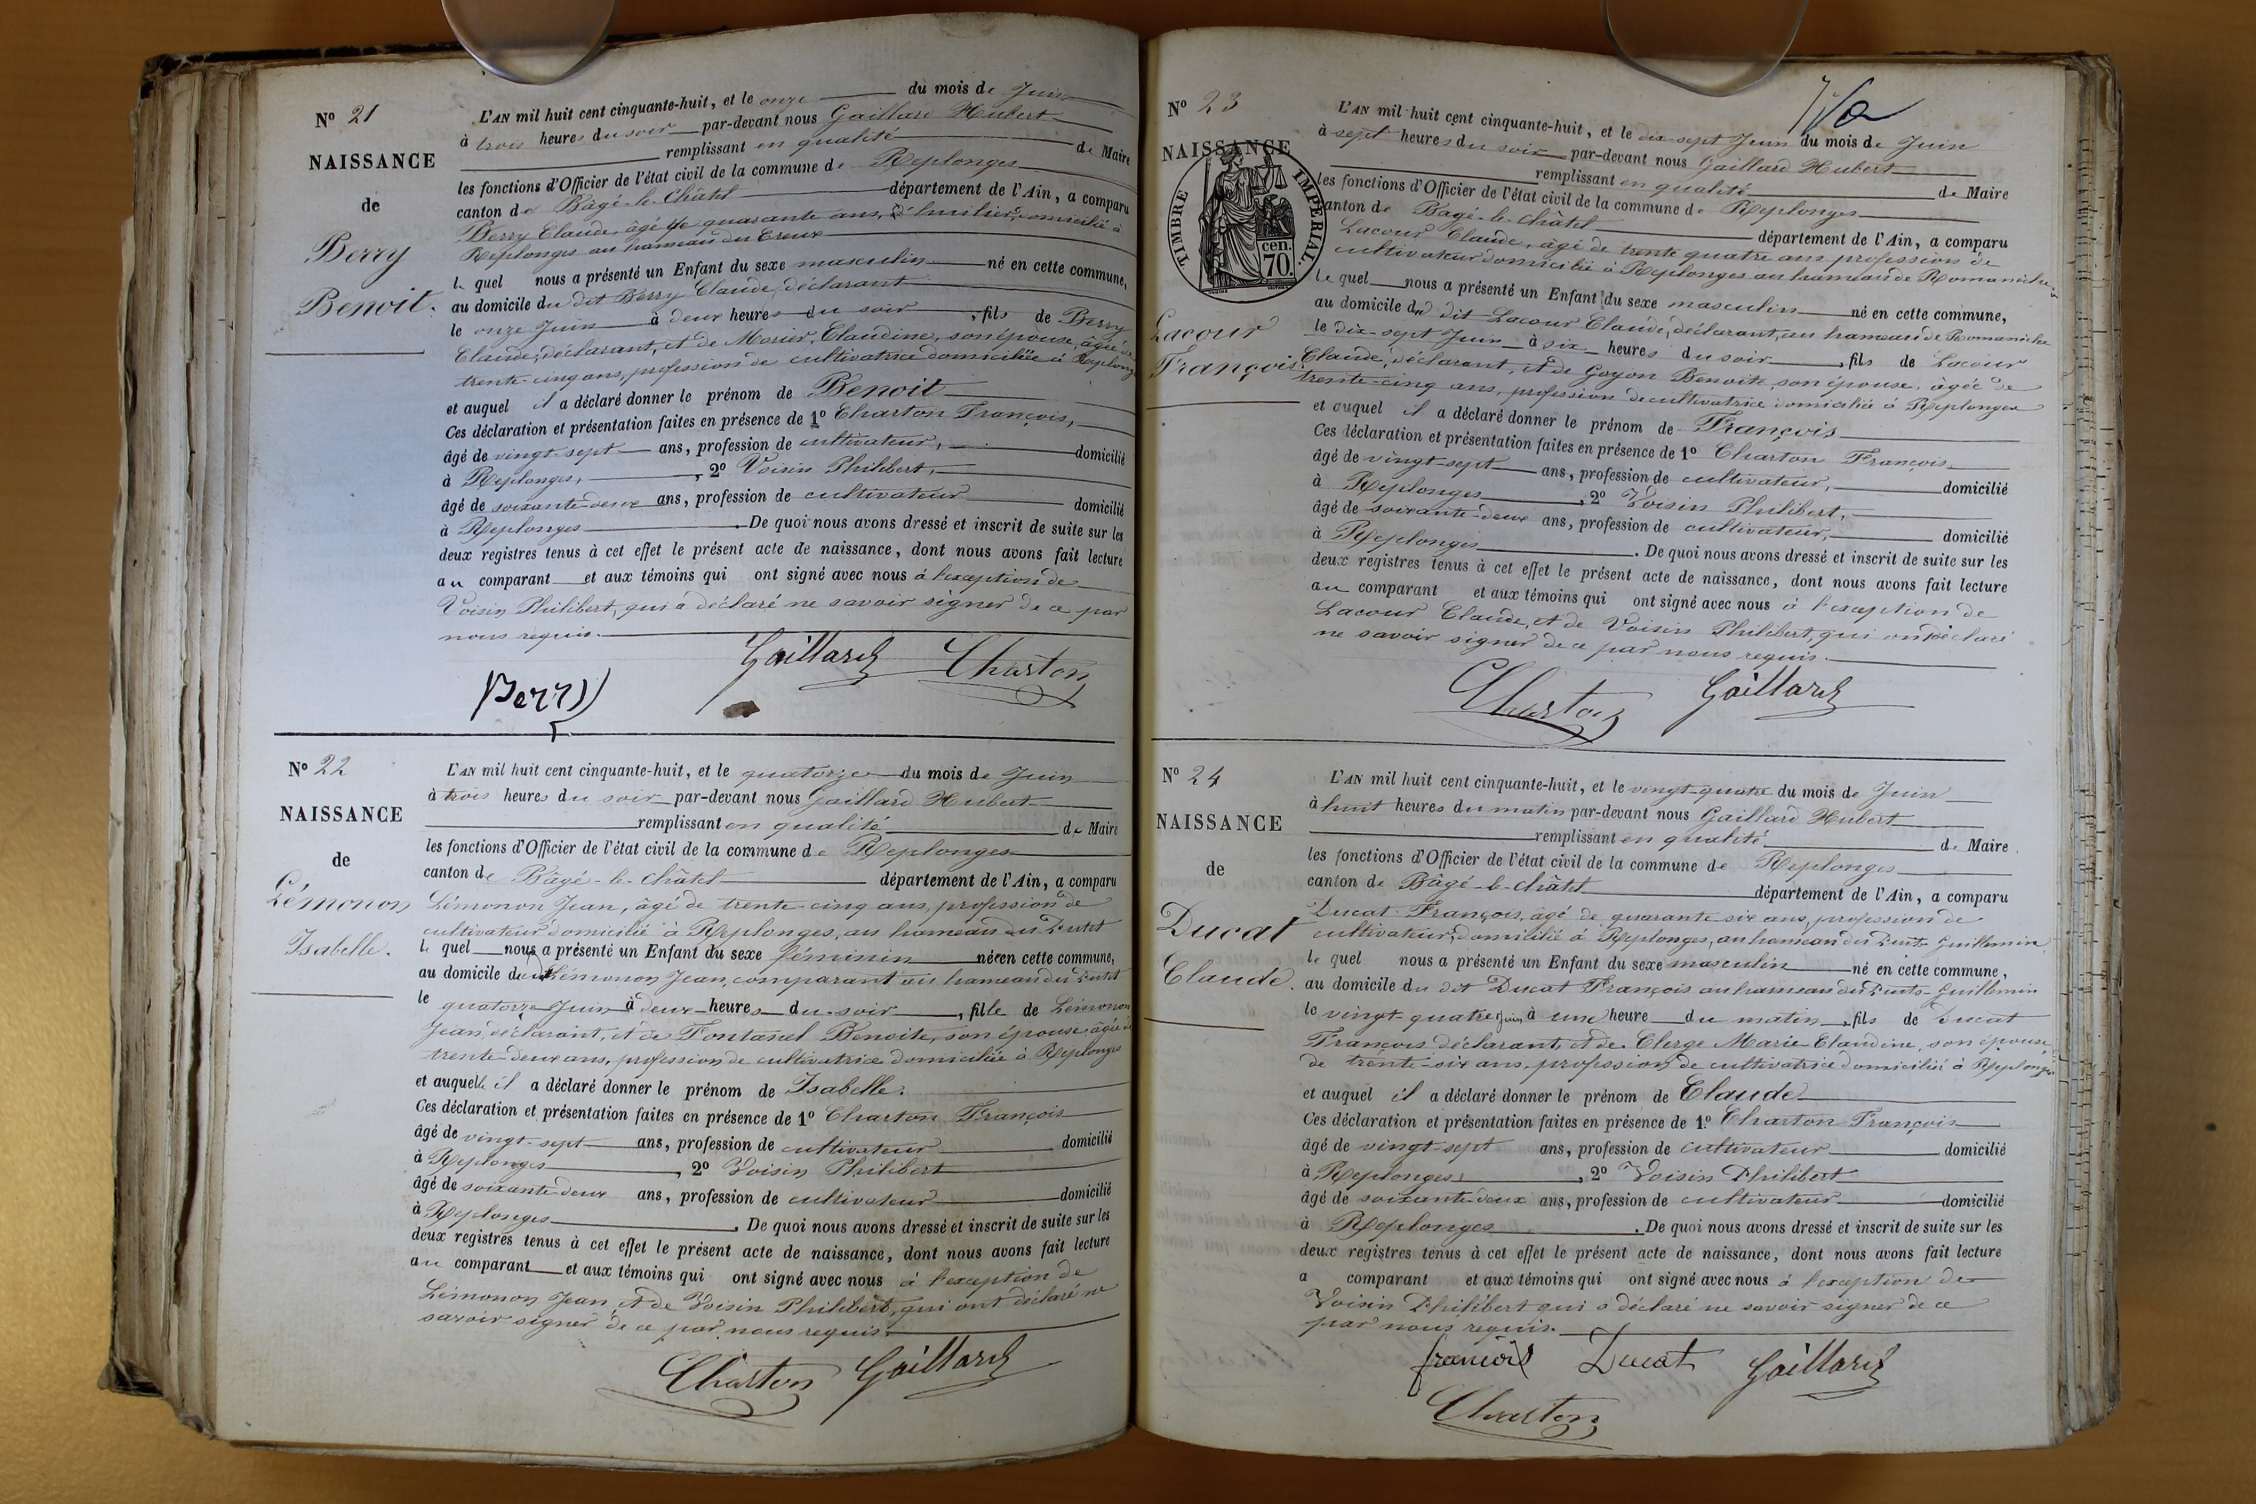 N° 21
NAISSANCE
de
Berry
Benoit.
L'AN mil huit cent cinquante-huit, et le onze du mois de Juin
à trois heures du soir par-devant nous Gaillard Hubert
remplissant en qualité de Maire
les fonctions d'Officier de l'état civil de la commune de Replonges
canton de Bâgé-le-Châtel département de l'Ain, a comparu
Berry Claude, âgé de quarante ans, huilier, domicilié à
Replonges au hameau du Creux
le quel nous a présenté un Enfant du sexe masculin né en cette commune,
au domicile du dit Berry Claude, déclarant
le onze Juin à deux heures du soir, fils de Berry
Claude, déclarant, et de Morier, Claudine, son épouse, âgée de
trente-cinq ans, profession de cultivatrice domiciliée à Replonges
et auquel il a déclaré donner le prénom de Benoit
Ces déclaration et présentation faites en présence de 1° Charton François,
âgé de vingt-sept ans, profession de cultivateur, domicilié
à Replonges, 2° Voisin Philibert,
âgé de soixante-deux ans, profession de cultivateur domicilié
à Replonges. De quoi nous avons dressé et inscrit de suite sur les
deux registres tenus à cet effet le présent acte de naissance, dont nous avons fait lecture
au comparant et aux témoins qui ont signé avec nous à l'exception de
Voisin Philibert, qui a déclaré ne savoir signer de ce par
nous requis.
Gaillard Charton
Berry
N° 22
NAISSANCE
de
Lémonon
Isabelle.
L'AN mil huit cent cinquante-huit, et le quatorze du mois de Juin
à trois heures du soir par-devant nous Gaillard Hubert
remplissant en qualité de Maire
les fonctions d'Officier de l'état civil de la commune de Replonges
canton de Bâgé-le-Châtel département de l'Ain, a comparu
Lémonon Jean, âgé de trente-cinq ans, profession de
cultivateur domicilié à Replonges, au hameau du
le quel nous a présenté un Enfant du sexe féminin née en cette commune,
au domicile du Lémonon Jean, comparant au hameau du
le quatorze Juin à deux heures du soir, fille de Lémonon
Jean, déclarant, et de Fontanel Benoite, son épouse âgée de
trente-deux ans, profession de cultivatrice domiciliée à Replonges
et auquelle il a déclaré donner le prénom de Isabelle.
Ces déclaration et présentation faites en présence de 1° Charton François
âgé de vingt-sept ans, profession de cultivateur domicilié
à Replonges, 2° Voisin Philibert
âgé de soixante-deux ans, profession de cultivateur domicilié
à Replonges. De quoi nous avons dressé et inscrit de suite sur les
deux registres tenus à cet effet le présent acte de naissance, dont nous avons fait lecture
au comparant et aux témoins qui ont signé avec nous à l'exception de
Lémonon Jean, et de Voisin Philibert, qui ont déclaré ne
savoir signer de ce par nous requis.
Charton Gaillard
N° 23
NAISSANCE
TIMBRE IMPERIAL.
cen.
70.
Lacour
François.
L'AN mil huit cent cinquante-huit, et le dix-sept Juin du mois de Juin
à sept heures du soir par-devant nous Gaillard Hubert
remplissant en qualité de Maire
les fonctions d'Officier de l'état civil de la commune de Replonges
canton de Bagé-le-châtel département de l'Ain, a comparu
Lacour Claude, âgé de trente quatre ans profession de
cultivateur domicilié à Replonges au hameau de Romanèche
le quel nous a présenté un Enfant du sexe masculin né en cette commune,
au domicile du dit Lacour Claude, déclarant, au hameau de Romanèche
le dix-sept Juin à six heures du soir, fils de Lacour
Claude, déclarant, et de Goyon Benoite, son épouse, âgée de
trente-cinq ans, profession de cultivatrice domiciliée à Replonges
et auquel il a déclaré donner le prénom de François
Ces déclaration et présentation faites en présence de 1° Charton François
âgé de vingt-sept ans, profession de cultivateur, domicilié
à Replonges, 2° Voisin Philibert,
âgé de soixante-deux ans, profession de cultivateur, domicilié
à Replonges. De quoi nous avons dressé et inscrit de suite sur les
deux registres tenus à cet effet le présent acte de naissance, dont nous avons fait lecture
au comparant et aux témoins qui ont signé avec nous à l'exception de
Lacour Claude, et de Voisin Philibert, qui ont déclaré
ne savoir signer de ce par nous requis.
Charton Gaillard
N° 24
NAISSANCE
de
Ducat
Claude.
L'AN mil huit cent cinquante-huit, et le vingt-quatre du mois de Juin
à huit heures du matin par-devant nous Gaillard Hubert
remplissant en qualité de Maire
les fonctions d'Officier de l'état civil de la commune de Replonges
canton de Bâgé-le-châtel département de l'Ain, a comparu
Ducat François, âgé de quarante six ans, profession de
cultivateur, domicilié à Replonges, au hameau du Puits-Guillemin
le quel nous a présenté un Enfant du sexe masculin né en cette commune,
au domicile du dit Ducat François au hameau du Puits-Guillemin
le vingt-quatre Juin à une heure du matin, fils de Ducat
François déclarant et de Clerge Marie-Claudine, son épouse
de trente-six ans, profession de cultivatrice domiciliée à Replonges
et auquel il a déclaré donner le prénom de Claude
Ces déclaration et présentation faites en présence de 1° Charton François
âgé de vingt-sept ans, profession de cultivateur domicilié
à Replonges, 2° Voisin Philibert
âgé de soixante-deux ans, profession de cultivateur domicilié
à Replonges. De quoi nous avons dressé et inscrit de suite sur les
deux registres tenus à cet effet le présent acte de naissance, dont nous avons fait lecture
a comparant et aux témoins qui ont signé avec nous à l'exception de
Voisin Philibert qui a déclaré ne savoir signer de ce
par nous requis.
françois Ducat Gaillard
Charton